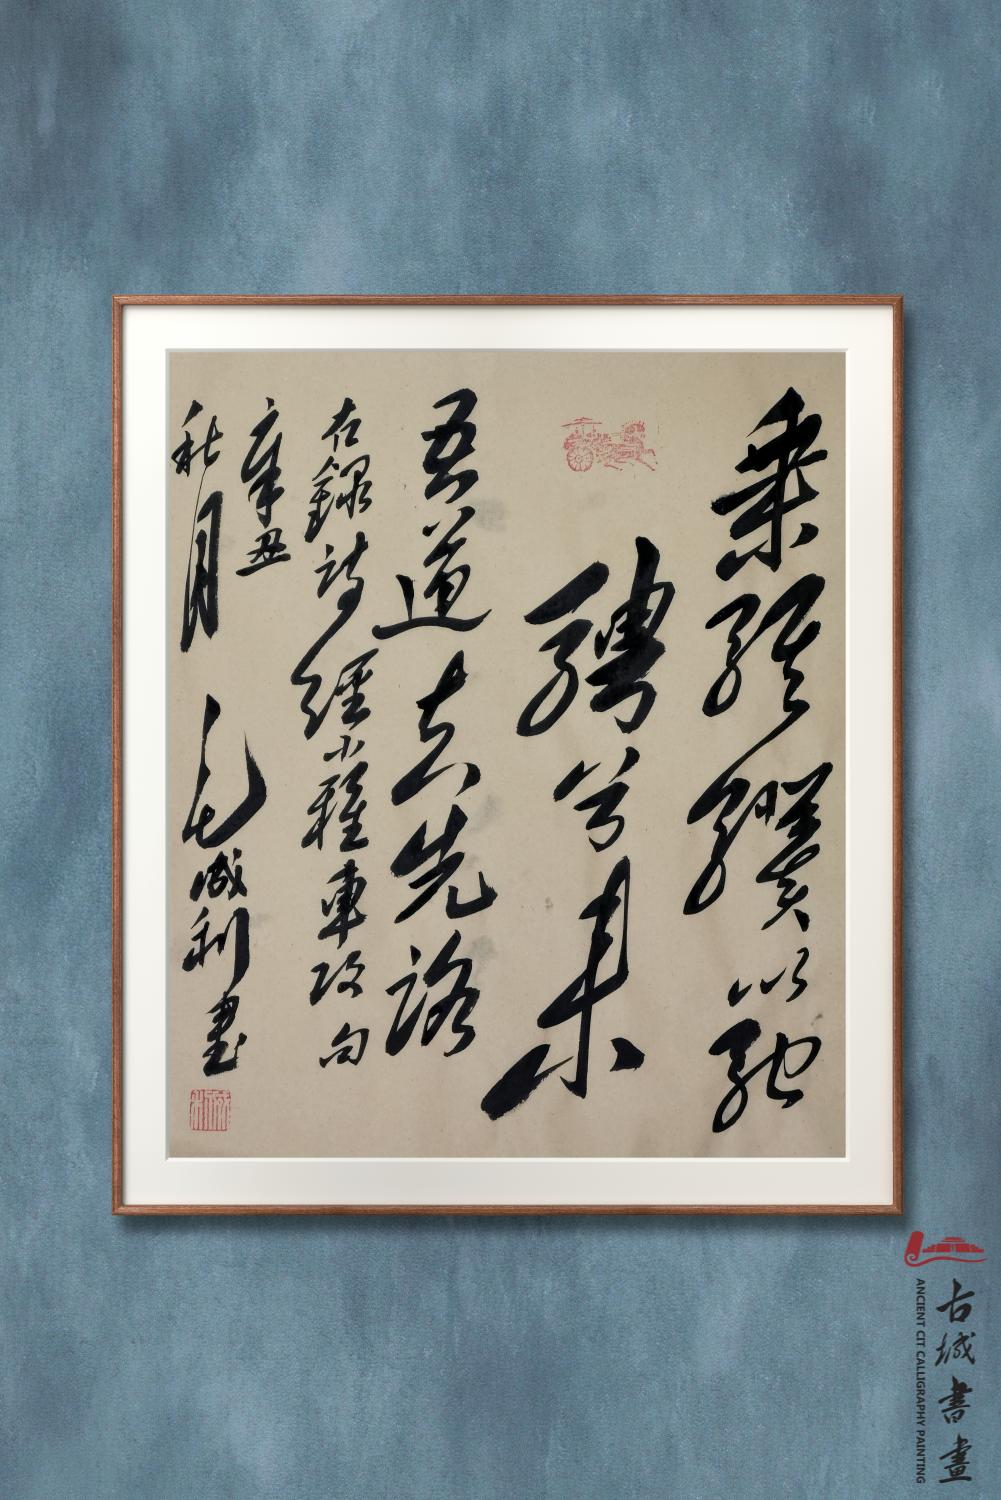 乘骐骥以驰
骋兮来
吾道夫先路
右録詩經小雅車攻句
辛丑
秋月 毛诚利書
古城書畫
ANCIENT CIT CALLIGRAPHY PAINTING